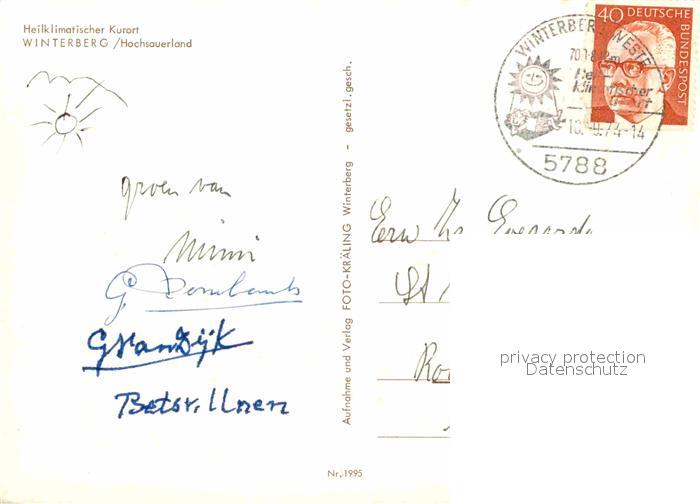 Heilklimatischer Kurort
WINTERBERG /Hochsauerland
groen van
Mimi
G.
G van Dijk
Betsr. Unen
Aufnahme und Verlag FOTO-KRÄLING Winterberg - gesetzl. gesch.
Nr. 1995
WINTERBERG WESTF
Heil
klimatischer
Kurort
10.9.74-14
5788
40 DEUTSCHE BUNDESPOST
Erw Zr
St.
privacy protection
Datenschutz